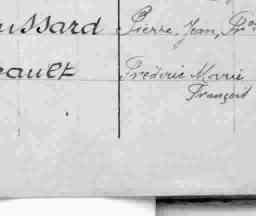 ussard Pierre, Jean, Fr
eault Fréderic Marie
François